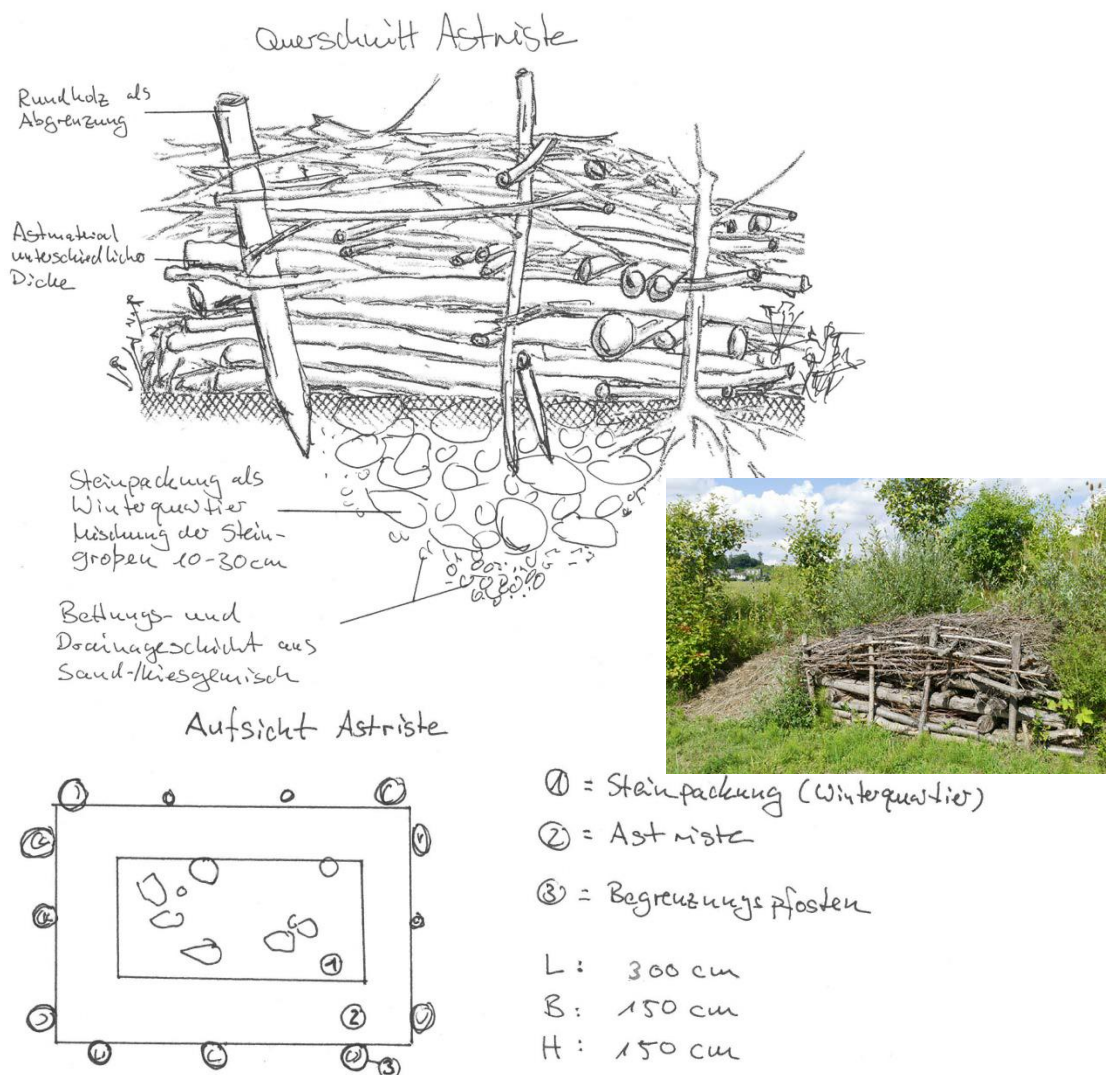 Querschnitt Astriste
Rundholz als
Abgrenzung
Astmaterial
unterschiedlicher
Dicke
Steinpackung als
Winterquartier
Mischung der Stein-
größen 10-30cm
Bettungs- und
Drainageschicht aus
Sand-/Kiesgemisch
Aufsicht Astriste
① = Steinpackung (Winterquartier)
② = Astriste
③ = Begrenzungspfosten
L: 300 cm
B: 150 cm
H: 150 cm
①
②
③